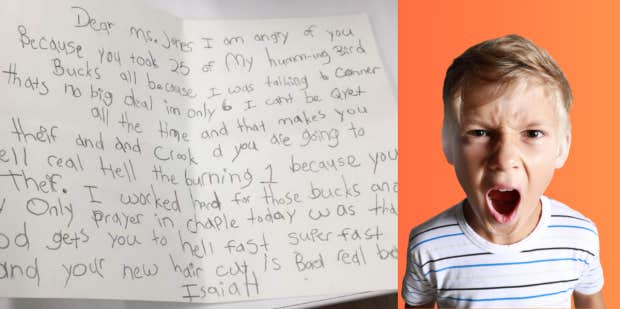 Dear Ms. Jones I am angry of you
Because you took 25 of My humm-ing Bird
Bucks all because I was talking to Conner
thats no big deal im only 6 I cant be Qyet
all the time and that makes you
theif and and Crook d you are going to
ell real Hell the burning 1 because you
Thef. I worked hard for those bucks and
Only prayer in chaple today was tha
od gets you to hell fast super fast
and your new hair cut is Bad reall bad
Isaiah